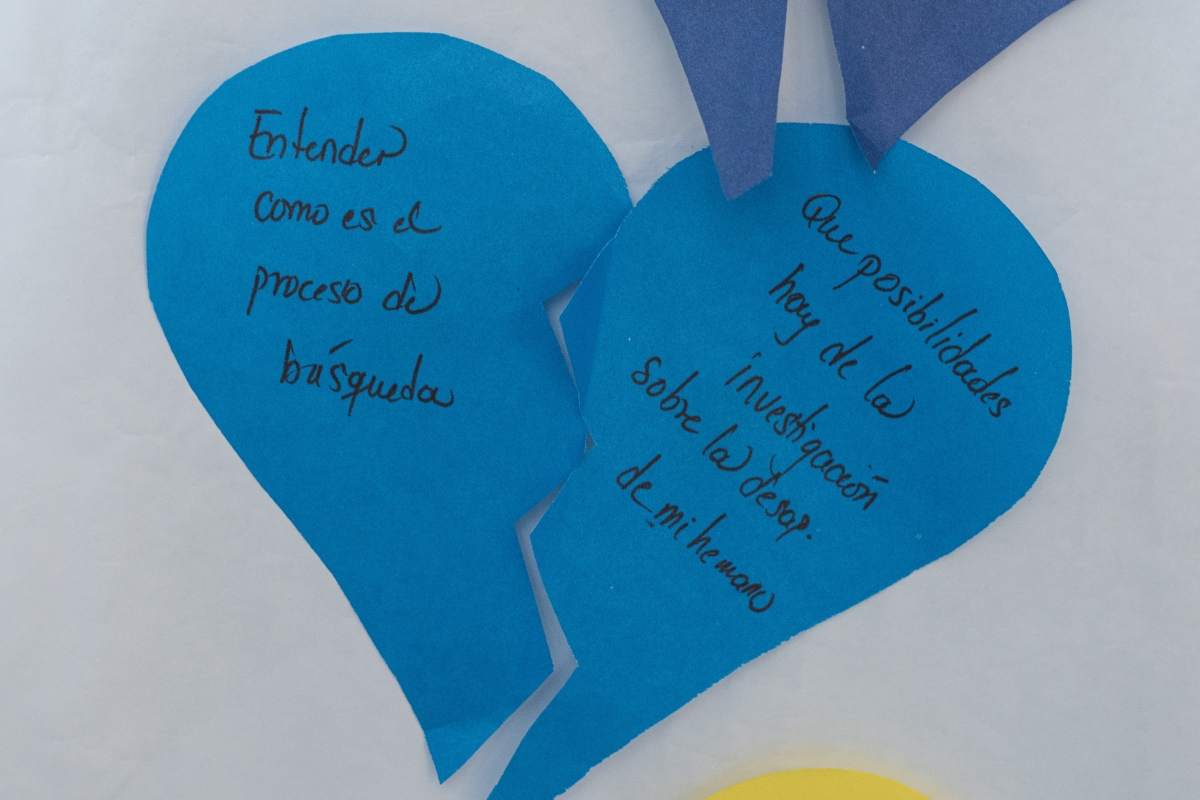 Entender
como es el
proceso de
búsqueda
Que posibilidades
hay de la
investigación
sobre la desap.
de mi hemano